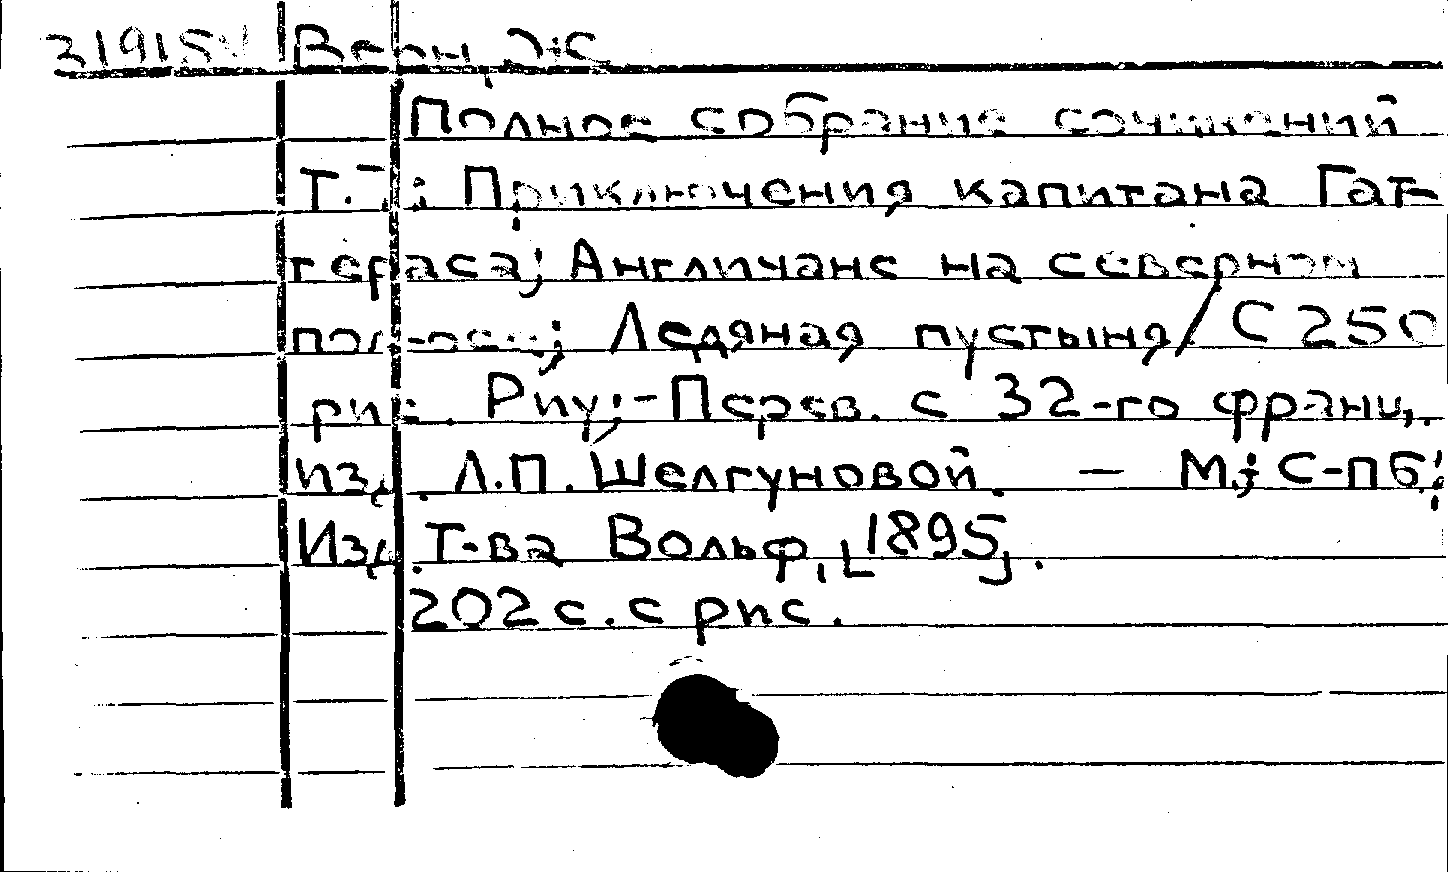 Верн, Ж.
Полное собрание сочинений
Т. : Приключения капитана Гат-
тераса; Англичане на северном
полюсе; Ледяная пустыня/С 250
рис. Риу;-Перев. с 32-го франц.
изд. Л.П. Шелгуновой. — М; С-Пб;
Изд. Т-ва Вольф, [1895].
202 с. с рис.